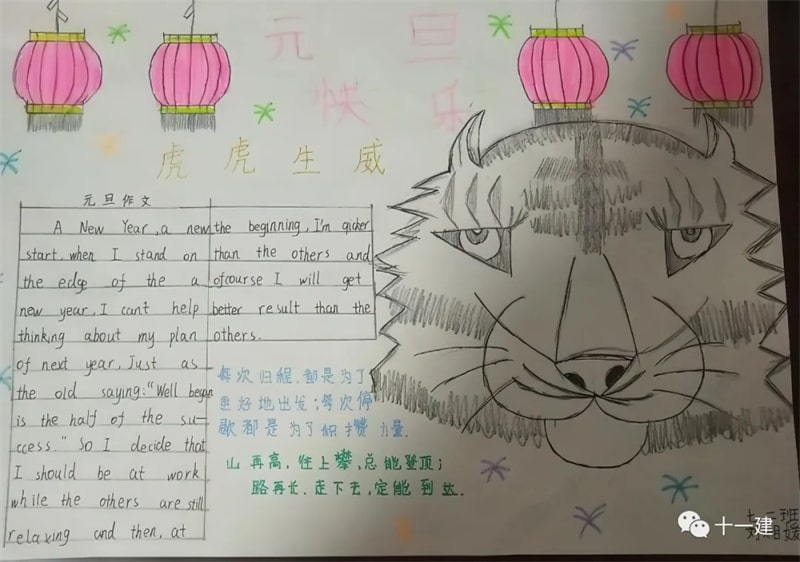 元 旦
快 乐
虎 虎 生 威
元旦作文
A New Year, a new
start, when I stand on
the edge of the a
new year, I can't help
thinking about my plan
of next year, Just as
the old saying: "Well began
is the half of the su-
ccess." So I decide that
I should be at work
while the others are still
relaxing and then, at
the beginning, I'm qicher
than the others and
ofcourse I will get
better result than the
others.
每次归程,都是为了
更好地出发;每次停
歇都是为了积攒力量.
山再高,往上攀,总能登顶;
路再长,走下去,定能到达.
十一建